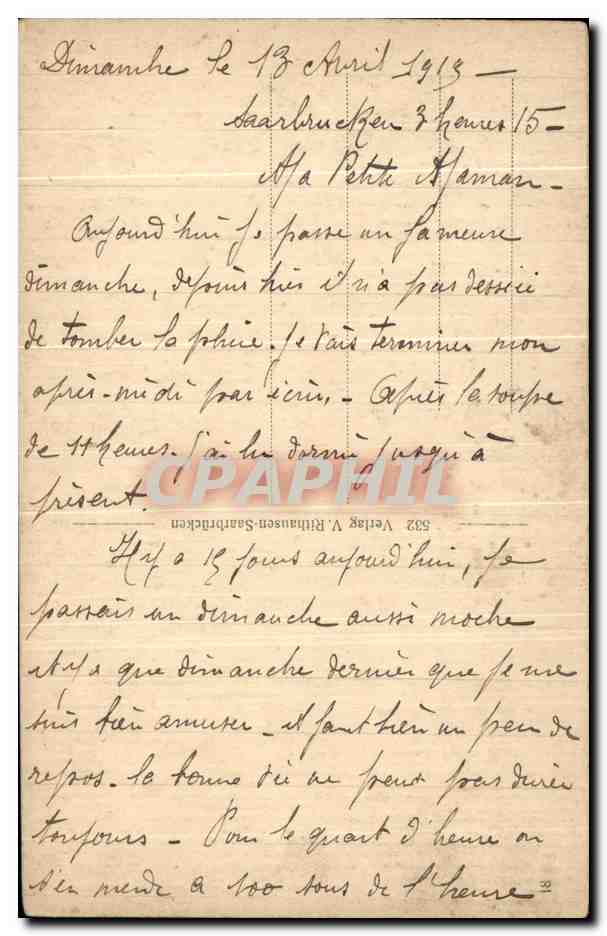 Dimanche le 13 Avril 1913 —
Saarbrucken 3 heures 15 —
Ma Petite Maman —
Aujourd'hui je passe un fameux
dimanche, depuis hier il n'a pas dessée
de tomber la pluie. Je vais terminer mon
après-midi par écrire. — Après la soupe
de 11 heures. j'ai lu dormi jusqu'à
présent.
CPAPHIL
532 Verlag V. Rithausen-Saarbrücken
Il y a 15 jours aujourd'hui, je
passais un dimanche aussi moche
il y a que dimanche dernier que je me
suis bien amuser — il faut bien un peu de
repos — la bonne vie ne peut pas durer
toujours — Pour le quart d'heure on
s'en merde a 100 sous de l'heure